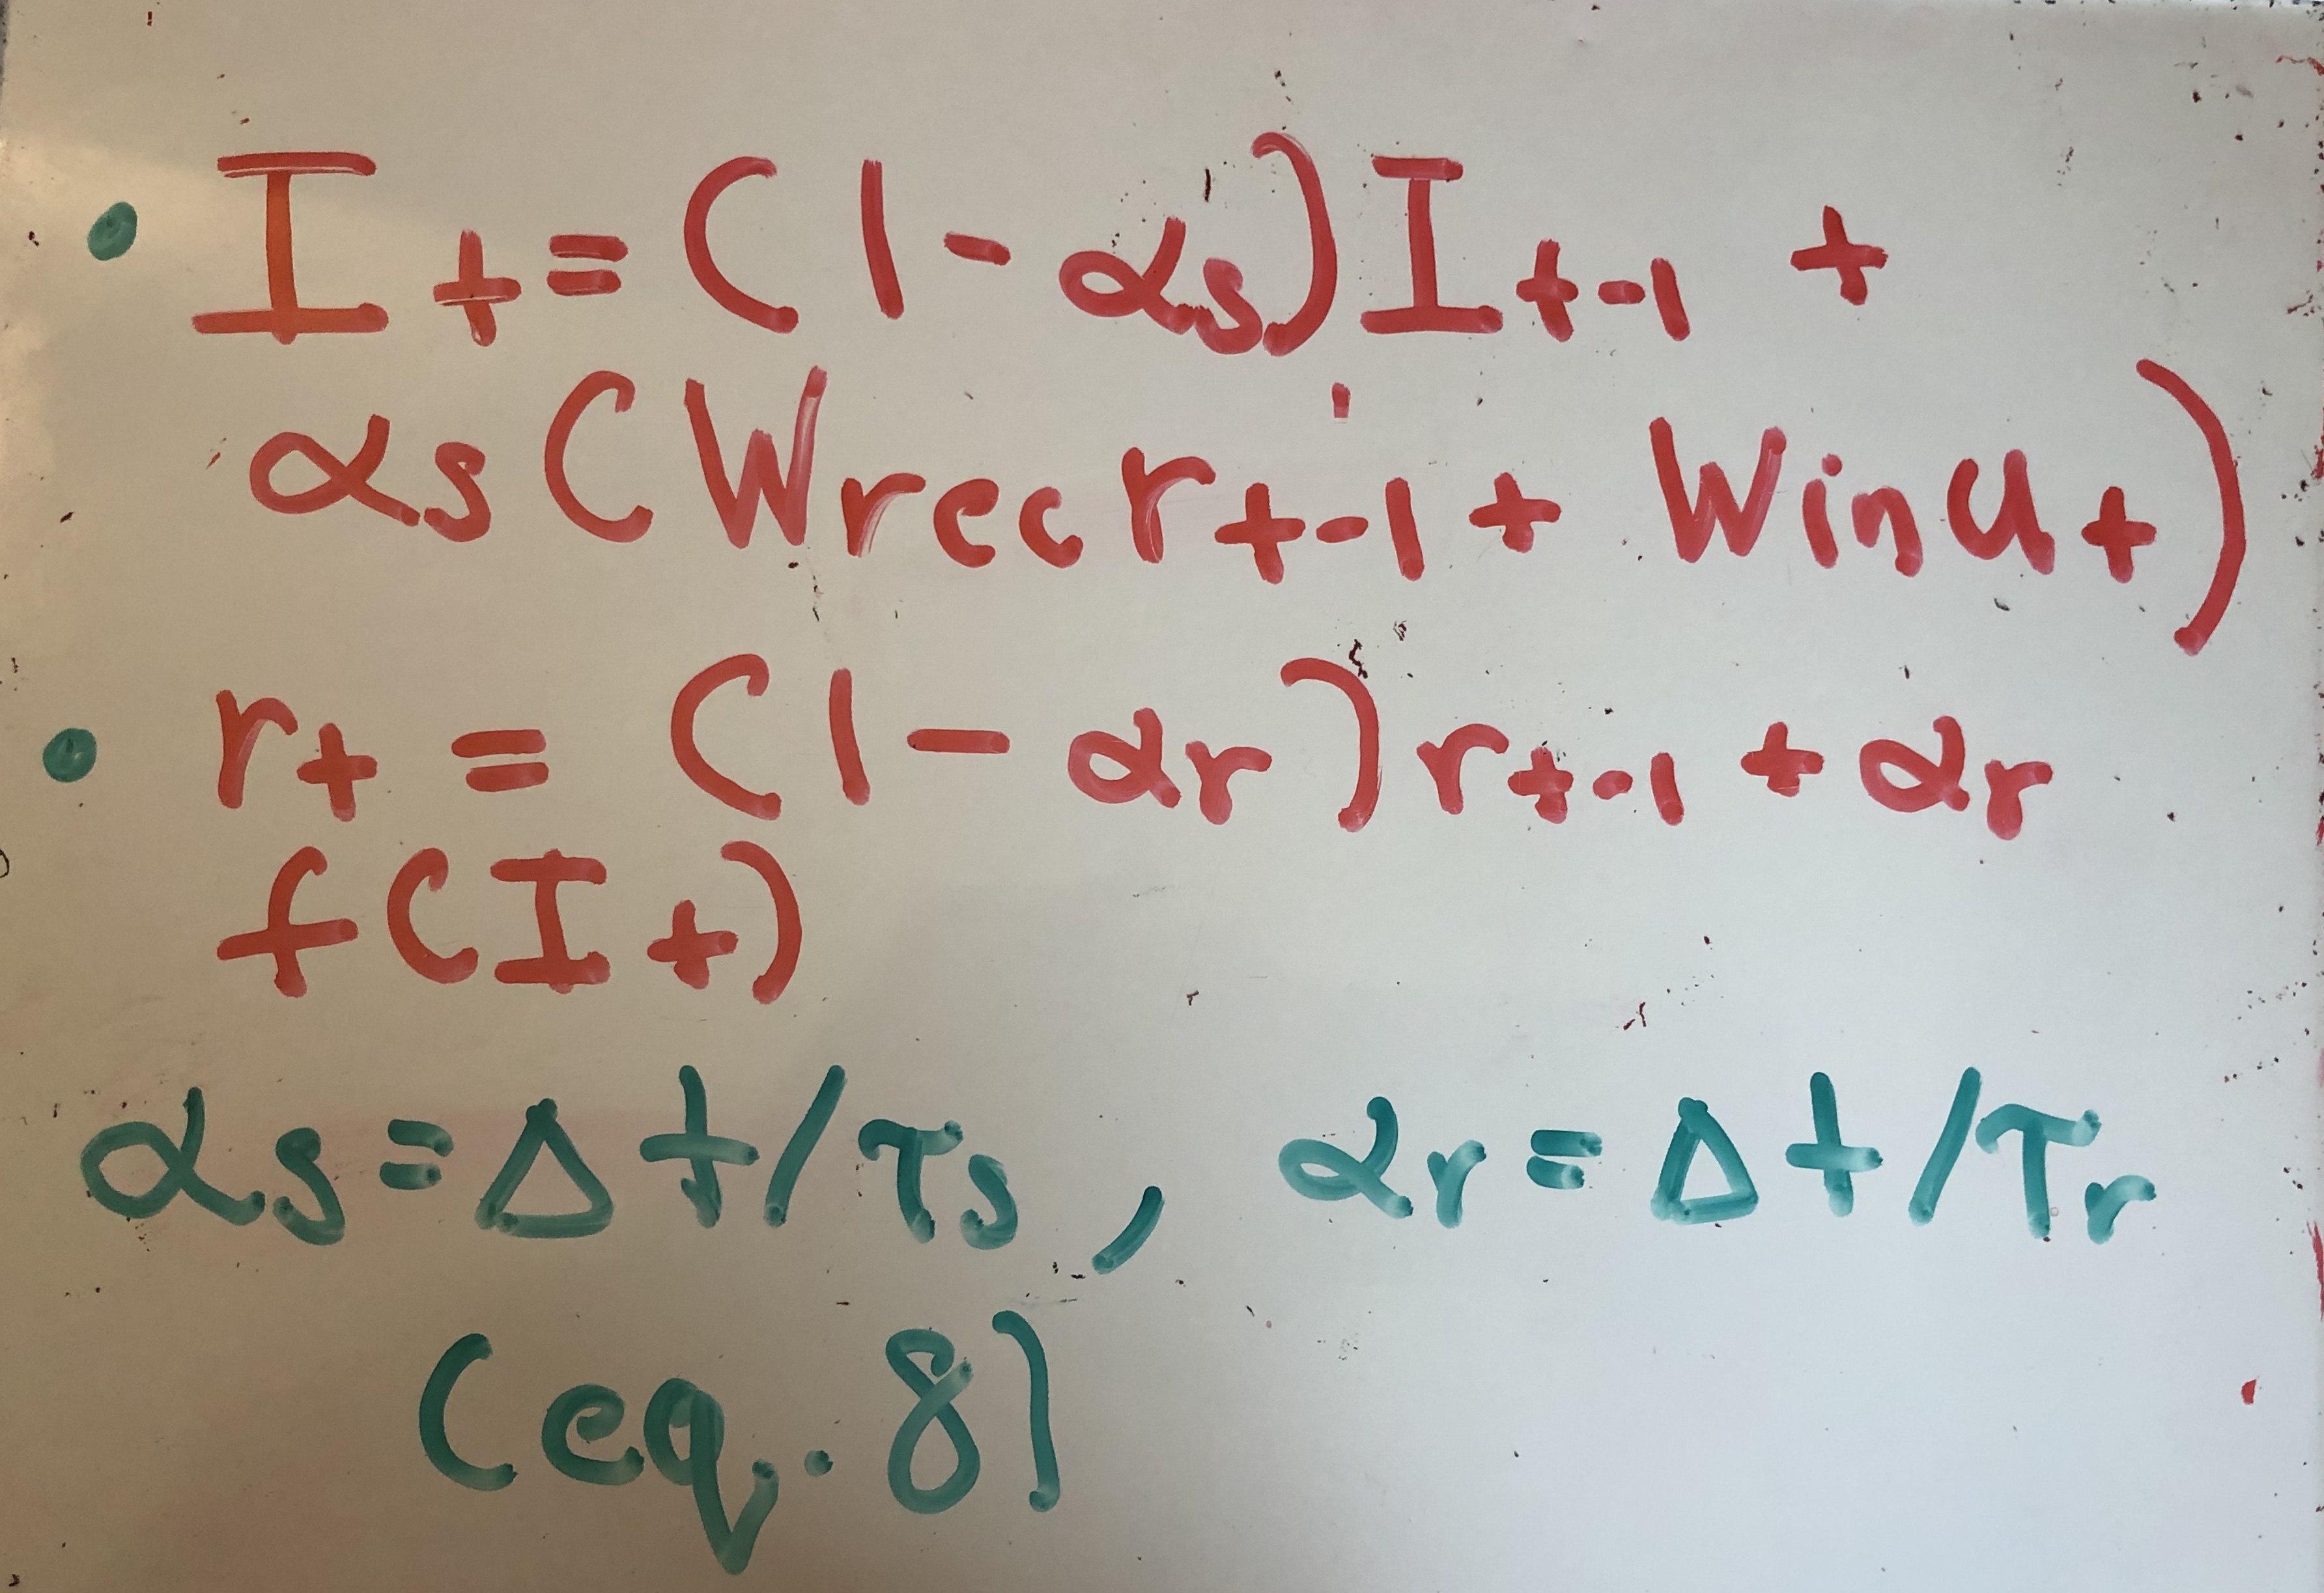 • I t = (1 - αs) I t-1 +
αs (Wrec r t-1 + Win u t)
• r t = (1 - αr) r t-1 + αr
f(I t)
αs = Δt/τs , αr = Δt/τr
(eq. 8)